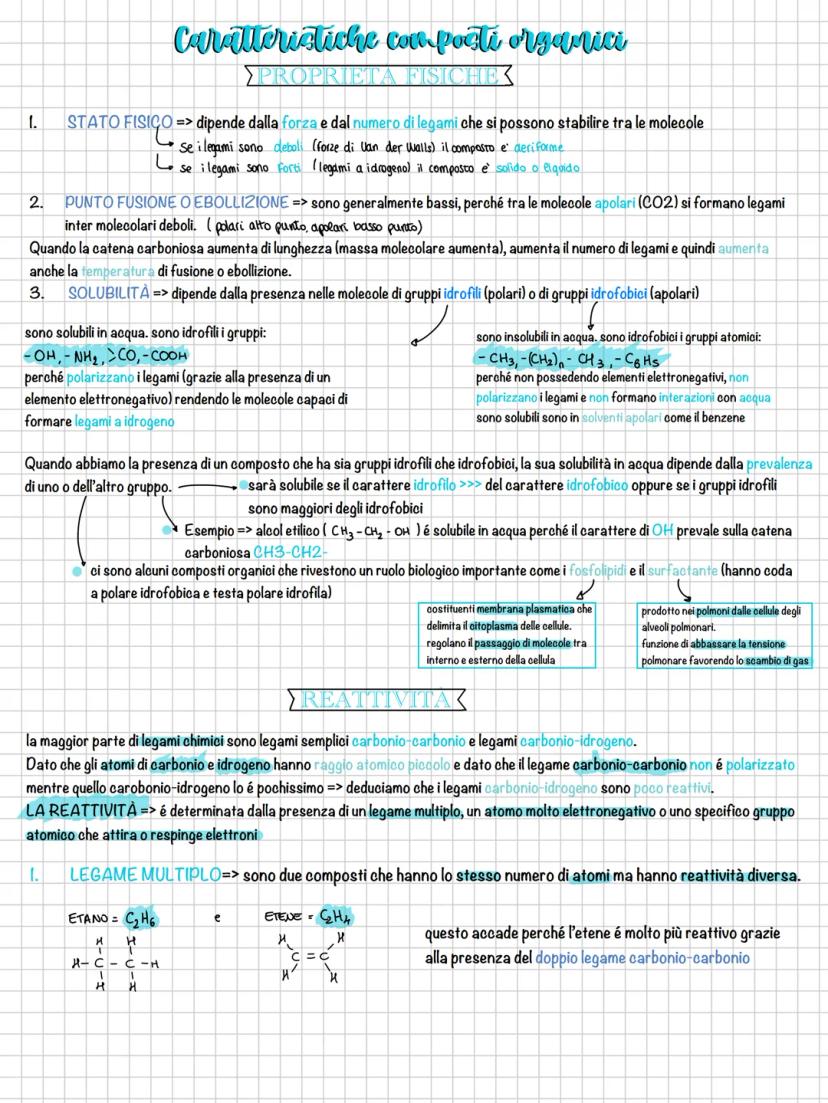 Caratteristiche composti organici
PROPRIETÀ FISICHE
1. STATO FISICO => dipende dalla forza e dal numero di legami che si possono stabilire tra le molecole
se i legami sono deboli (forze di Van der Walls) il composto e' aeriforme
se i legami sono forti (legami a idrogeno) il composto e' solido o liquido
2. PUNTO FUSIONE O EBOLLIZIONE => sono generalmente bassi, perché tra le molecole apolari (CO2) si formano legami
inter molecolari deboli. (polari alto punto, apolari basso punto)
Quando la catena carboniosa aumenta di lunghezza (massa molecolare aumenta), aumenta il numero di legami e quindi aumenta
anche la temperatura di fusione o ebollizione.
3. SOLUBILITÀ => dipende dalla presenza nelle molecole di gruppi idrofili (polari) o di gruppi idrofobici (apolari)
sono solubili in acqua. sono idrofili i gruppi:
- OH, - NH₂, >CO, - COOH
perché polarizzano i legami (grazie alla presenza di un
elemento elettronegativo) rendendo le molecole capaci di
formare legami a idrogeno
sono insolubili in acqua. sono idrofobici i gruppi atomici:
- CH₃, -(CH₂)n - CH₃, - C₆H₅
perché non possedendo elementi elettronegativi, non
polarizzano i legami e non formano interazioni con acqua
sono solubili sono in solventi apolari come il benzene
Quando abbiamo la presenza di un composto che ha sia gruppi idrofili che idrofobici, la sua solubilità in acqua dipende dalla prevalenza
di uno o dell'altro gruppo. sarà solubile se il carattere idrofilo >>> del carattere idrofobico oppure se i gruppi idrofili
sono maggiori degli idrofobici
Esempio => alcol etilico ( CH₃ - CH₂ - OH ) é solubile in acqua perché il carattere di OH prevale sulla catena
carboniosa CH3-CH2-
ci sono alcuni composti organici che rivestono un ruolo biologico importante come i fosfolipidi e il surfactante (hanno coda
a polare idrofobica e testa polare idrofila)
costituenti membrana plasmatica che
delimita il citoplasma delle cellule.
regolano il passaggio di molecole tra
interno e esterno della cellula
prodotto nei polmoni dalle cellule degli
alveoli polmonari.
funzione di abbassare la tensione
polmonare favorendo lo scambio di gas
REATTIVITÀ
la maggior parte di legami chimici sono legami semplici carbonio-carbonio e legami carbonio-idrogeno.
Dato che gli atomi di carbonio e idrogeno hanno raggio atomico piccolo e dato che il legame carbonio-carbonio non é polarizzato
mentre quello carobonio-idrogeno lo é pochissimo => deduciamo che i legami carbonio-idrogeno sono poco reattivi.
LA REATTIVITÀ => é determinata dalla presenza di un legame multiplo, un atomo molto elettronegativo o uno specifico gruppo
atomico che attira o respinge elettroni
1. LEGAME MULTIPLO=> sono due composti che hanno lo stesso numero di atomi ma hanno reattività diversa.
ETANO = C₂H₆ e ETENE = C₂H₄
H H
H - C - C - H
H H
H H
C = C
H H
questo accade perché l'etene é molto più reattivo grazie
alla presenza del doppio legame carbonio-carbonio